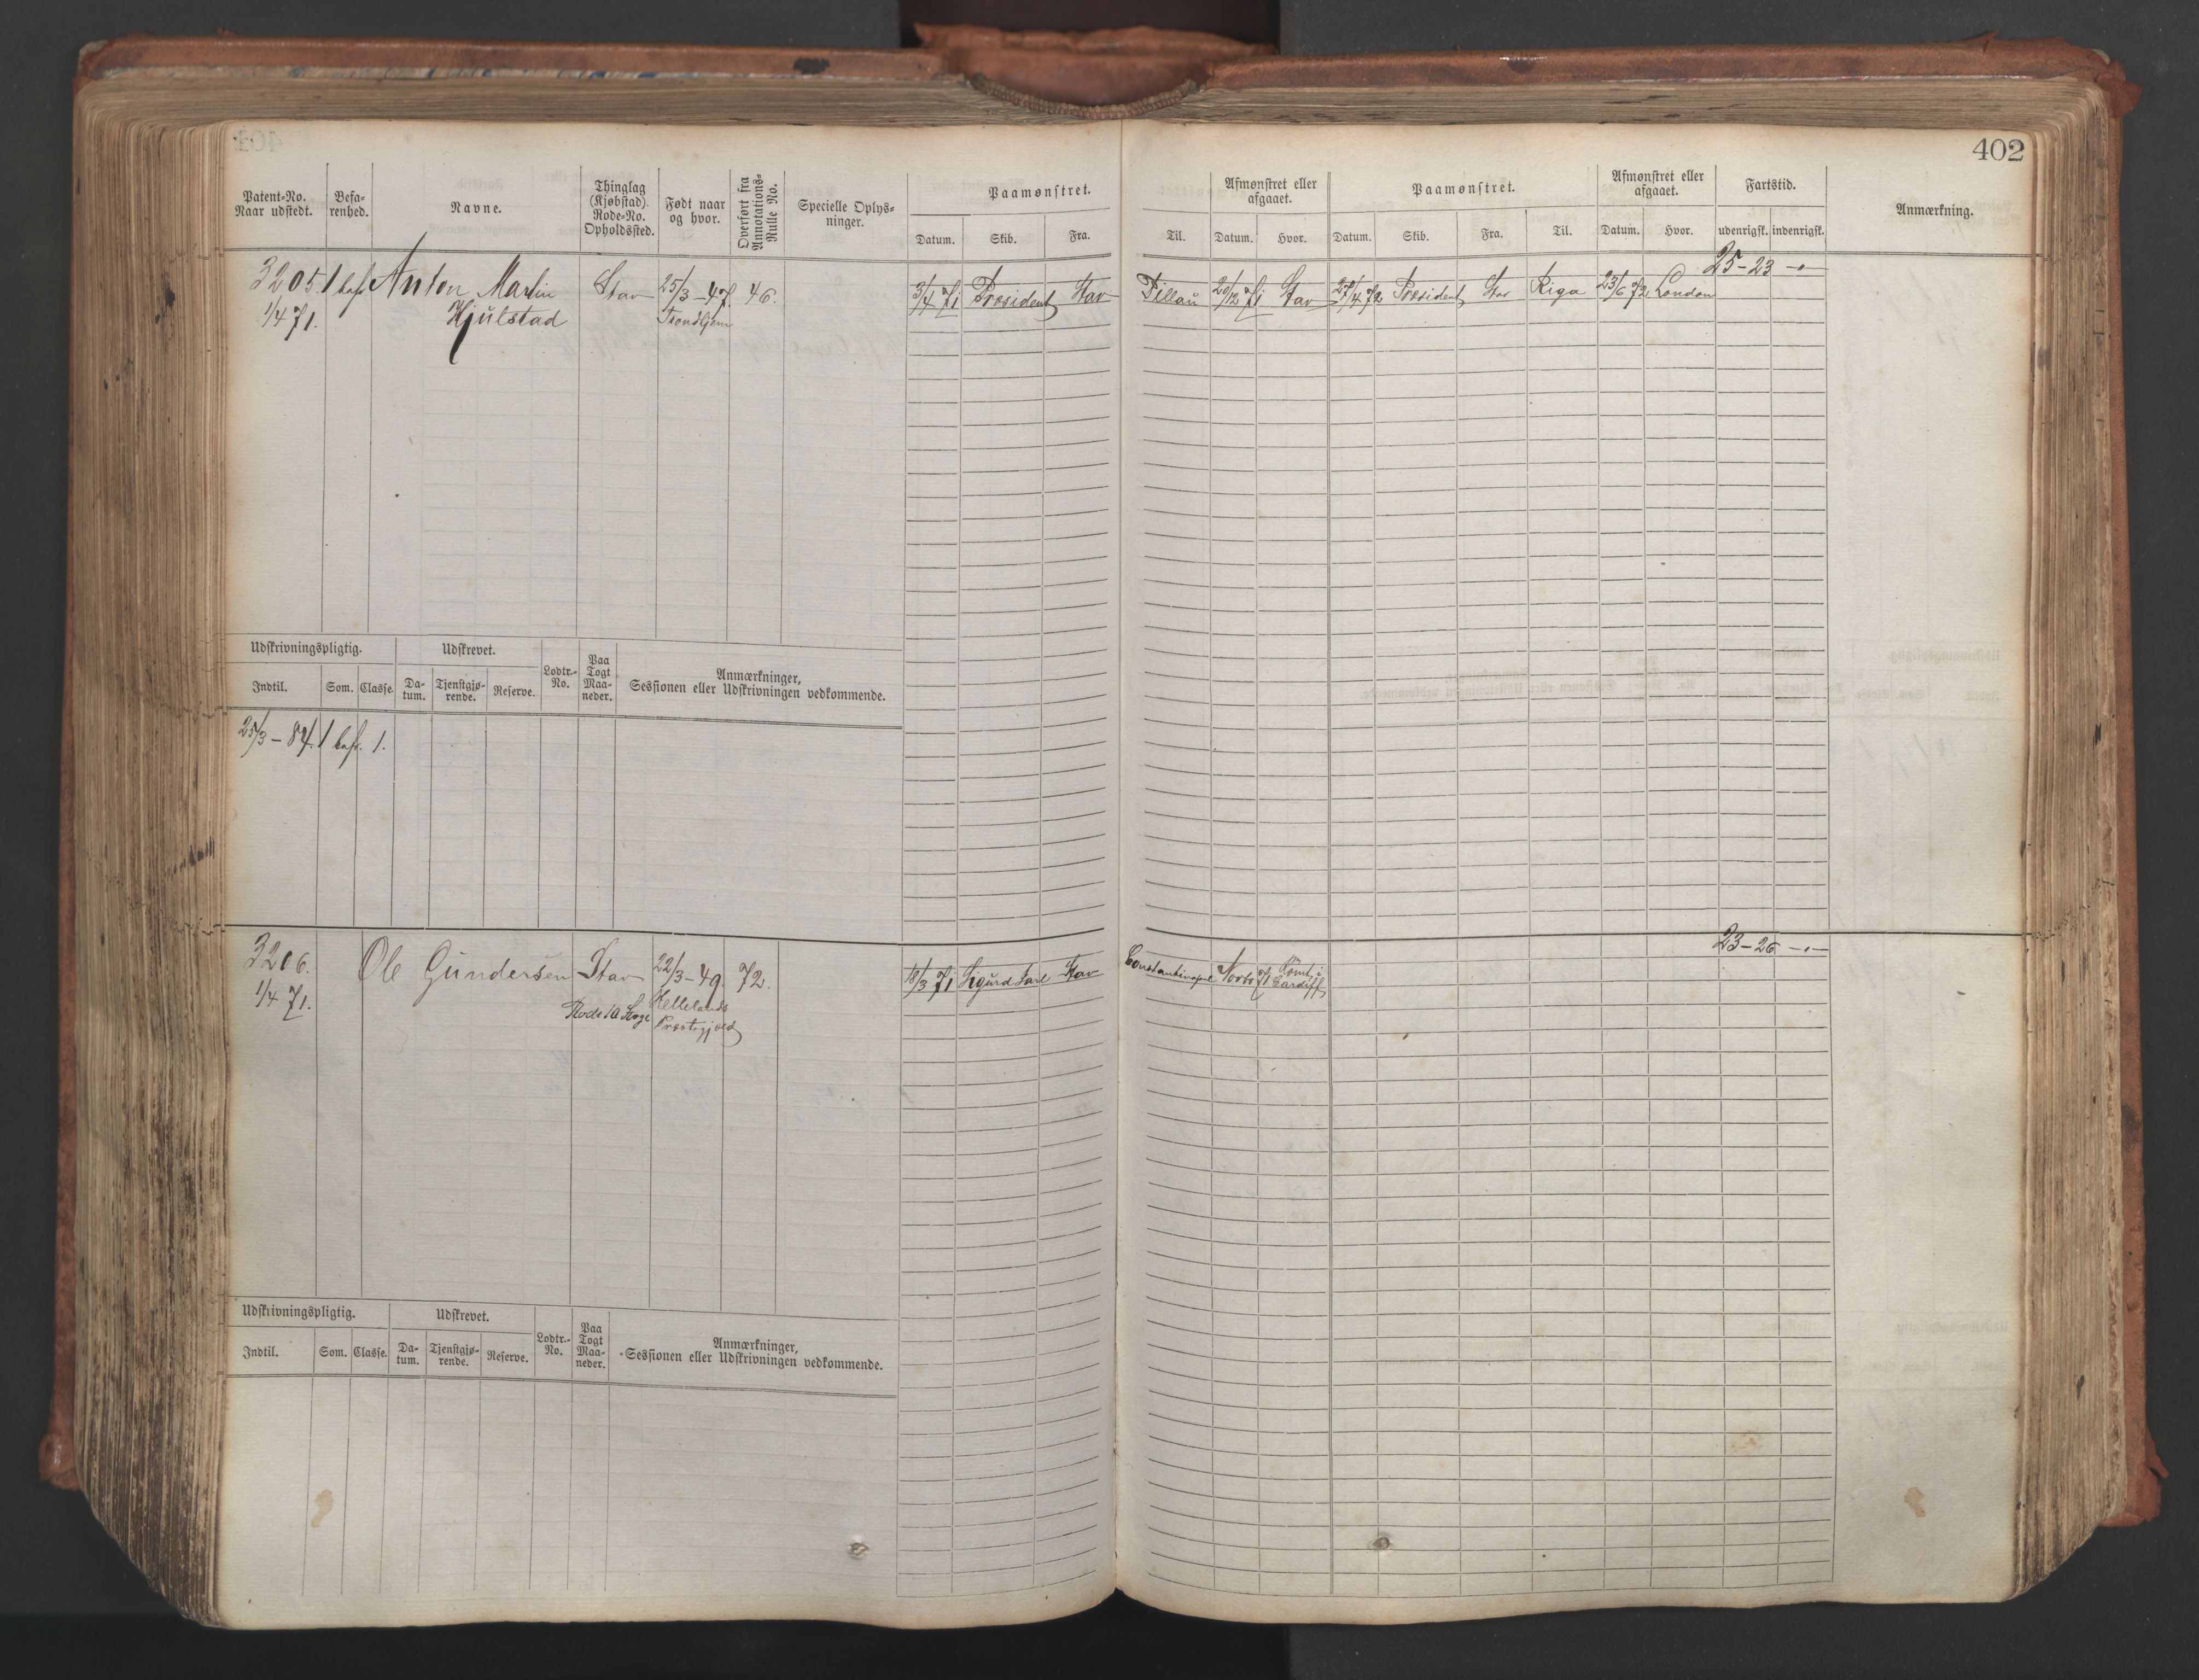 402
Patent-No.
Naar udstedt.
Befa-
renhed.
Navne.
Thinglag
(Kjøbstad).
Rode-No.
Opholdssted.
Født naar
og hvor.
Overført fra
Annotations-
Rulle No.
Specielle Oplys-
ninger.
Paamønstret.
Datum. Skib. Fra.
Til.
Afmønstret eller
afgaaet.
Datum. Hvor.
Paamønstret.
Datum. Skib. Fra. Til.
Afmønstret eller
afgaaet.
Datum. Hvor.
Fartstid.
udenrigsk. indenrigsk.
Anmærkning.
25-23 -"-
3205 1 bef Anton Martin Stav 25/3-47. 46. 3/4 71 Præsident Stav Pillau 20/12 71 Stav 27/4 72 Præsident Stav Riga 23/6 72 London
1/4 71. Hjulstad Trondhjem
Udskrivningspligtig.
Udskrevet.
Lodtr.-
No.
Paa
Togt
Maa-
neder.
Anmærkninger,
Sessionen eller Udskrivningen vedkommende.
Indtil. Som. Classe. Da-
tum. Tjenstgjø-
rende. Reserve.
25/3-84. 1 bef. 1.
23-26 -"-
3206. Ole Gundersen Stav 22/3-49. 72. 18/3 71 Sigurd Jarl Stav Constantinopel Novbr 71 Rømt i
Cardiff
1/4 71. Rode 10 Hellelands
Præstegjeld
Udskrivningspligtig.
Udskrevet.
Lodtr.-
No.
Paa
Togt
Maa-
neder.
Anmærkninger,
Sessionen eller Udskrivningen vedkommende.
Indtil. Som. Classe. Da-
tum. Tjenstgjø-
rende. Reserve.